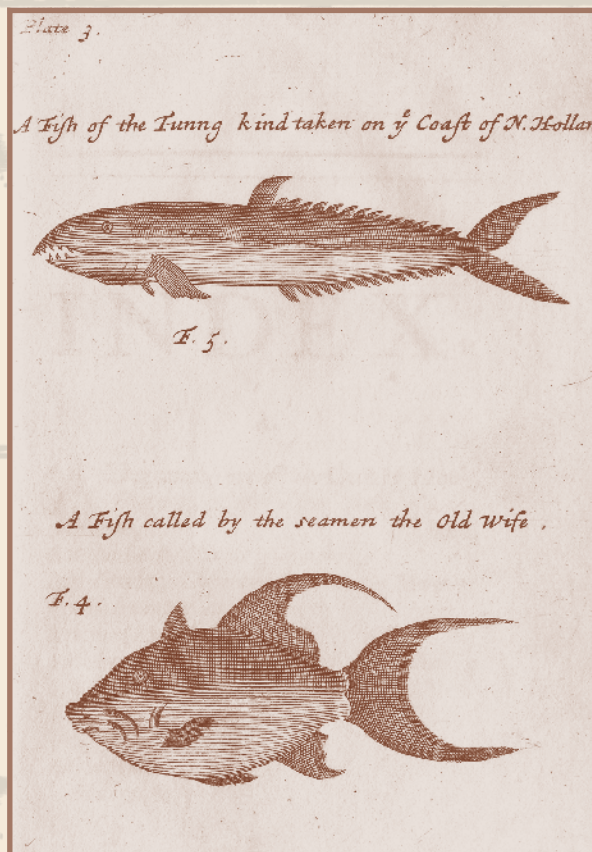 Plate 3.
A Fish of the Tunng kind taken on yͤ Coast of N. Hollan
F. 5.
INDEX
A Fish called by the seamen the Old Wife.
F. 4.